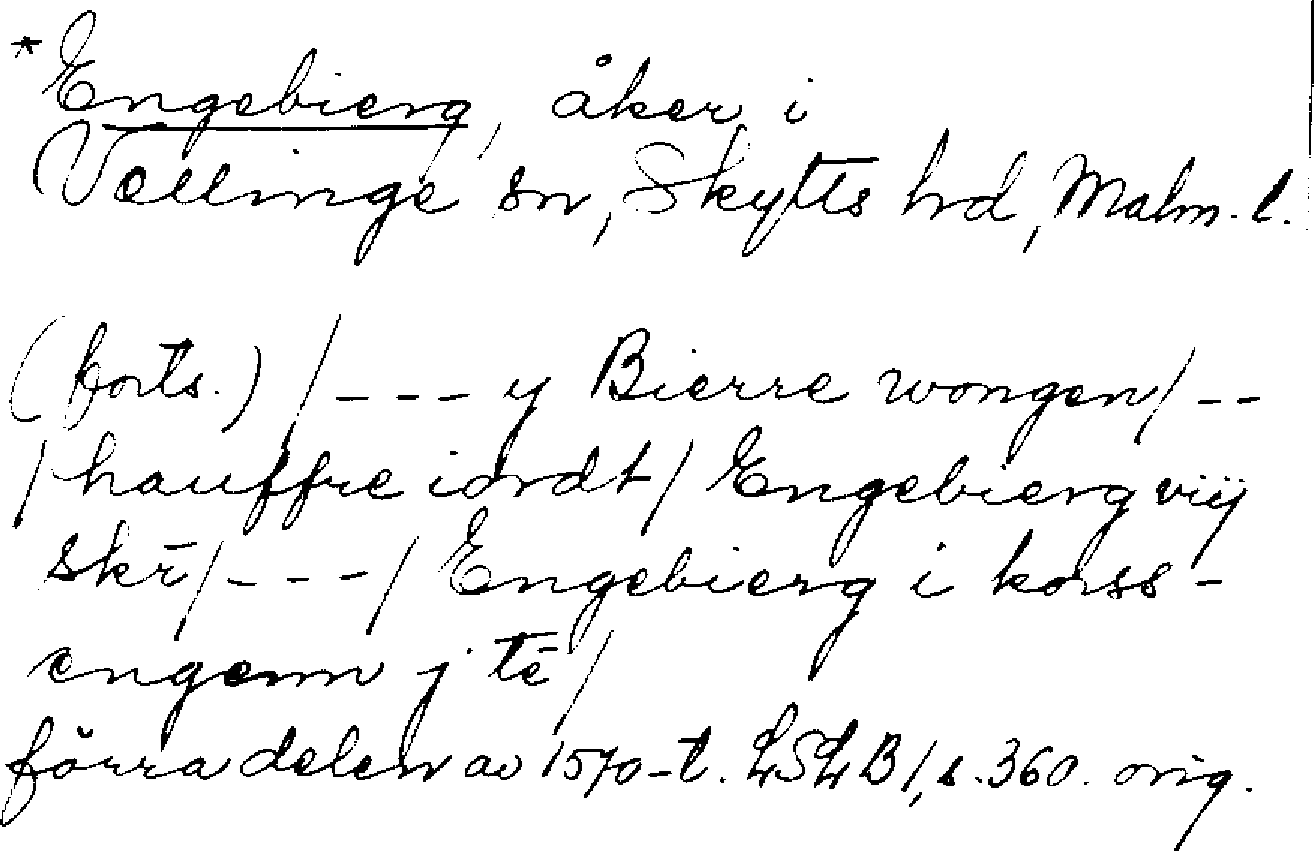 *Engebierg, åker i
Vellinge sn, Skytts hrd, Malm. l.
(forts.) /--- y Bierre wongen/--
/hauffre iordt/ Engebierg viij
skr̄/---/ Engebierg i korss-
engenn j tē/
förra delen av 1570-t. LSLB1, s. 360. orig.